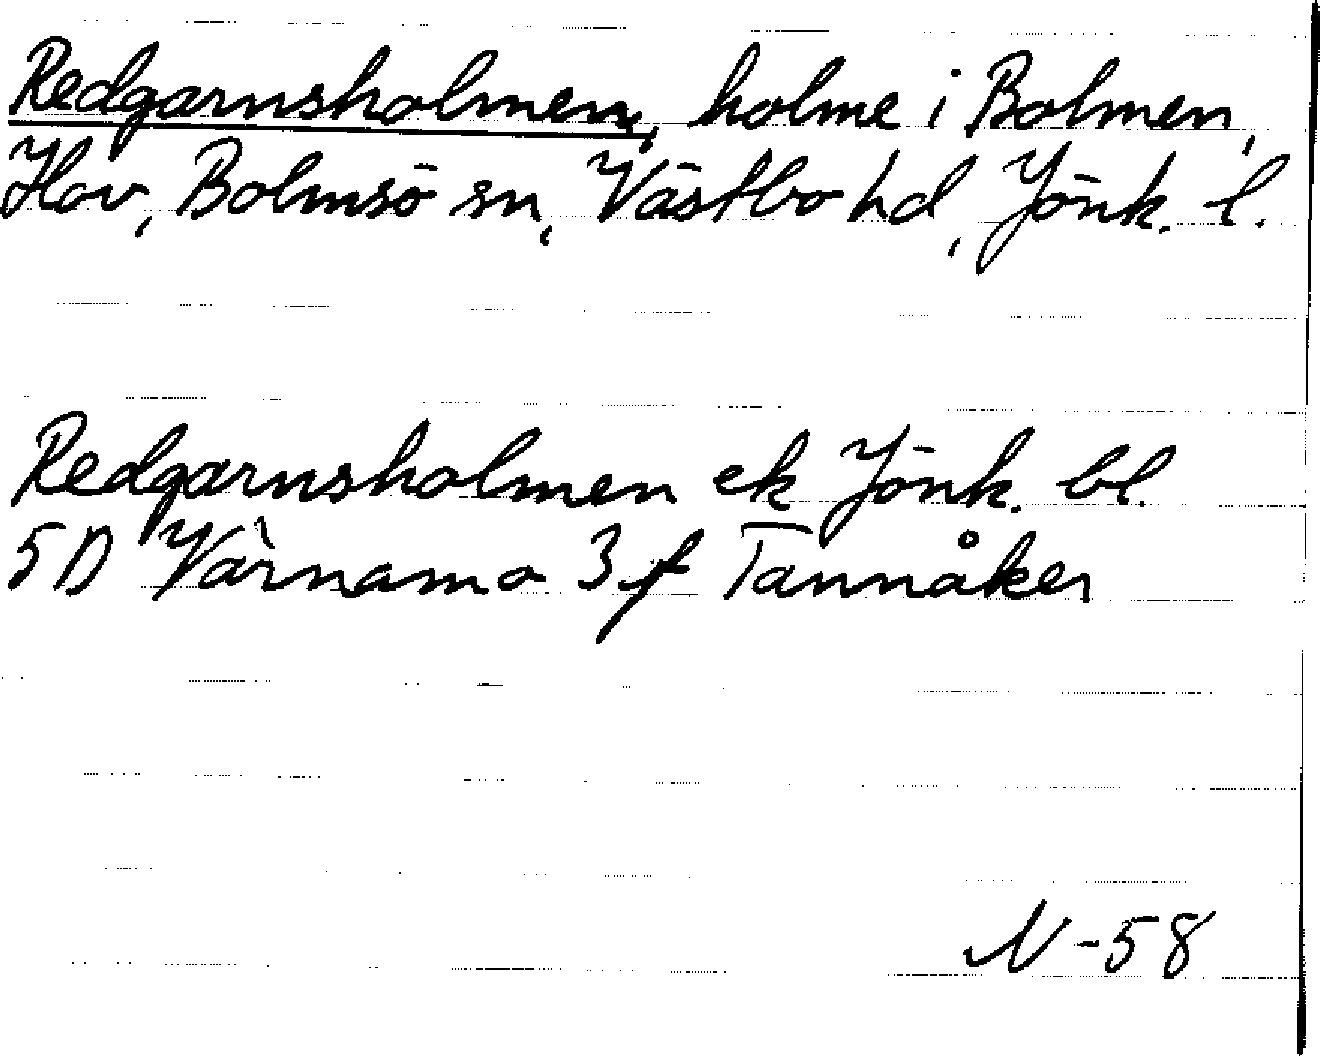 Redgarnsholmen, holme i Bolmen,
Hov, Bolmsö sn, Västbo hd, Jönk. l.
Redgarnsholmen ek Jönk. bl.
5D Värnamo 3f Tannåker
N-58